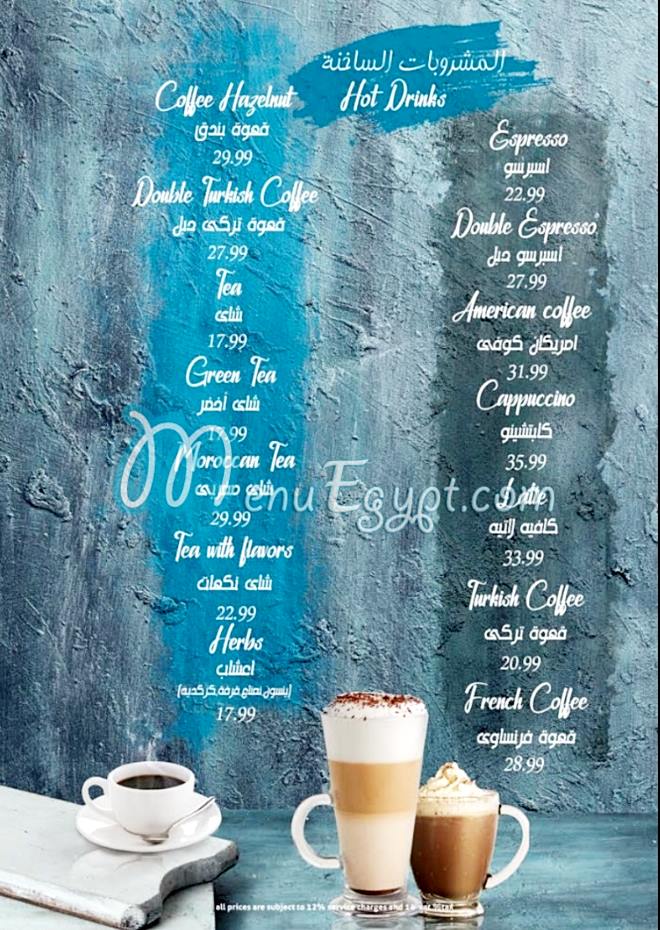 المشروبات الساخنة
Hot Drinks
Coffee Hazelnut
قهوة بندق
29.99
Double Turkish Coffee
قهوة تركى دبل
27.99
Tea
شاى
17.99
Green Tea
شاى أخضر
17.99
Moroccan Tea
شاى مغربى
29.99
Tea with flavors
شاى نكهات
22.99
Herbs
اعشاب
(ينسون,نعناع,قرفة,كركديه)
17.99
Espresso
اسبرسو
22.99
Double Espresso
اسبرسو دبل
27.99
American coffee
امريكان كوفى
31.99
Cappuccino
كابتشينو
35.99
Latte
كافيه لاتيه
33.99
Turkish Coffee
قهوة تركى
20.99
French Coffee
قهوة فرنساوى
28.99
MenuEgypt.com
all prices are subject to 12% service charges and 14